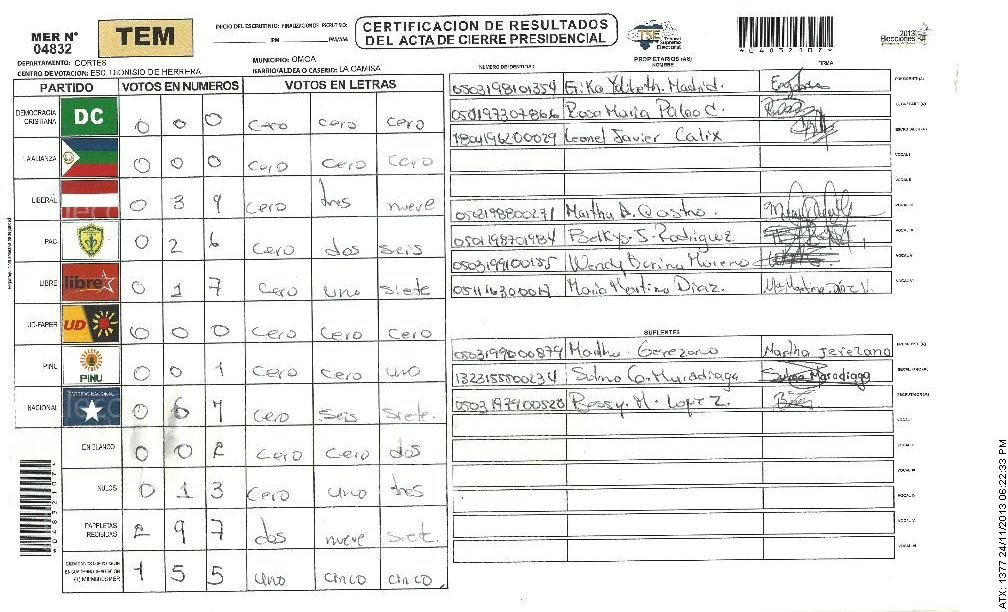 MER N° 04832
TEM
INICIO DEL ESCRUTINIO: FINALIZACION DE ESCRUTINIO:
PM PM/AM
CERTIFICACION DE RESULTADOS
DEL ACTA DE CIERRE PRESIDENCIAL
TSE Tribunal Supremo Electoral
*04832107*
2013 Elecciones
DEPARTAMENTO: CORTES
MUNICIPIO: OMOA
CENTRO DE VOTACION: ESC. DIONISIO DE HERRERA
BARRIO/ALDEA O CASERIO: LA CAMISA
PARTIDO VOTOS EN NUMEROS VOTOS EN LETRAS
DEMOCRACIA CRISTIANA DC 0 0 0 cero cero cero
LA ALIANZA 0 0 0 cero cero cero
LIBERAL 0 3 9 cero tres nueve
PAC 0 2 6 cero dos seis
LIBRE libre 0 1 7 cero uno siete
UD-FAPER UD 0 0 0 cero cero cero
PINU PINU 0 0 1 cero cero uno
NACIONAL 0 6 7 cero seis siete.
EN BLANCO 0 0 2 cero cero dos
NULOS 0 1 3 cero uno tres
PAPELETAS RECIBIDAS 2 9 7 dos nueve siete.
1 5 5 uno cinco cinco.
*04832107*
NUMERO DE IDENTIDAD PROPIETARIOS (AS) NOMBRE FIRMA
0503198101354 Erika Yolibeth Madrid. PRESIDENTE (A)
0501197307866 Rosa Maria Paleo C. SECRETARIO (A)
1804196200029 Leonel Javier Calix ESCRUTADOR (A)
VOCAL I
VOCAL II
0502198800271 Martha A. Castro. VOCAL III
0501198701984 Belkys S. Rodriguez VOCAL IV
0503199100155 Wendy Dorina Moreno VOCAL V
Maria Martina Diaz. VOCAL VI
SUPLENTES
0503199000879 Martha Gerezano Martha Jerezano
1323155500234 Selma G. Maradiaga Selma Maradiaga
0503197900520 Bessy M. Lopez.
VOCAL I
VOCAL II
VOCAL III
VOCAL IV
VOCAL V
VOCAL VI
ATX: 1377 24/11/2013 06:22:33 PM